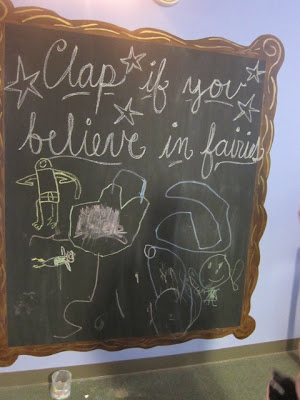 Clap if you
believe in fairies